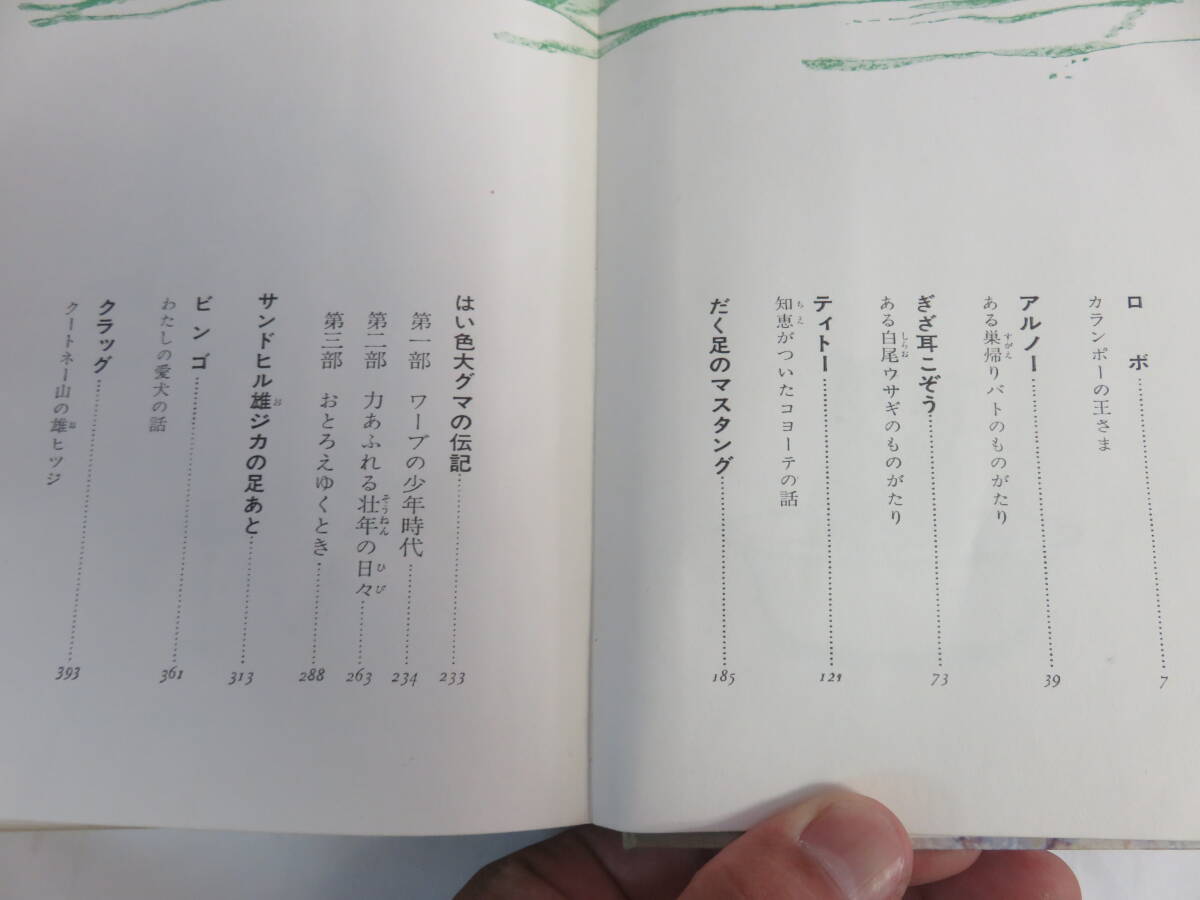 ロボ……7
カランポーの王さま
アルノー……39
ある巣帰りバトのものがたり
すがえ
ぎざ耳こぞう……73
ある白尾ウサギのものがたり
しらお
ティトー……121
知恵がついたコヨーテの話
ちえ
だく足のマスタング……185
はい色大グマの伝記……233
第一部 ワーブの少年時代……234
第二部 力あふれる壮年の日々……263
そうねん ひび
第三部 おとろえゆくとき……288
サンドヒル雄ジカの足あと……313
お
ビンゴ……361
わたしの愛犬の話
クラッグ……393
クートネー山の雄ヒツジ
お